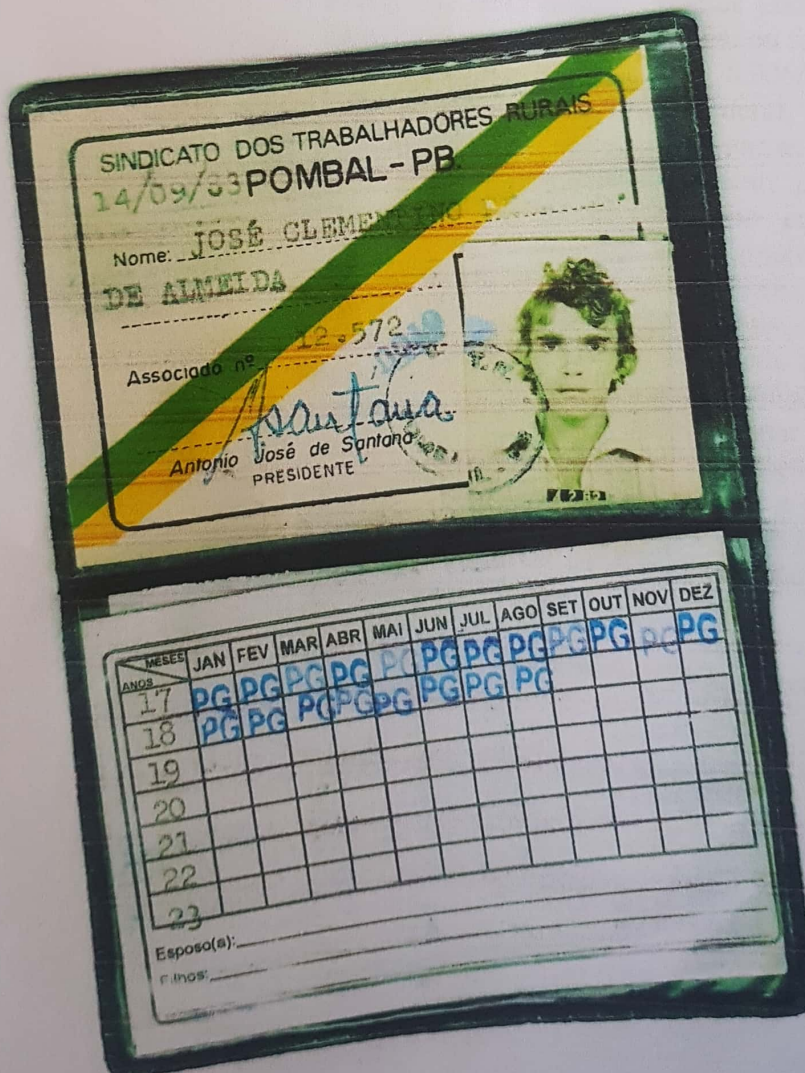 SINDICATO DOS TRABALHADORES RURAIS
14/09/83 POMBAL - PB.
Nome: JOSÉ CLEMENTINO
DE ALMEIDA
Associado nº 12.572
Asantana
Antonio José de Santana
PRESIDENTE
MESES JAN FEV MAR ABR MAI JUN JUL AGO SET OUT NOV DEZ
ANOS
17 PG PG PG PG PG PG PG PG PG PG PG PG
18 PG PG PG PG PG PG PG PG
19
20
21
22
23
Esposo(a):
Filhos: